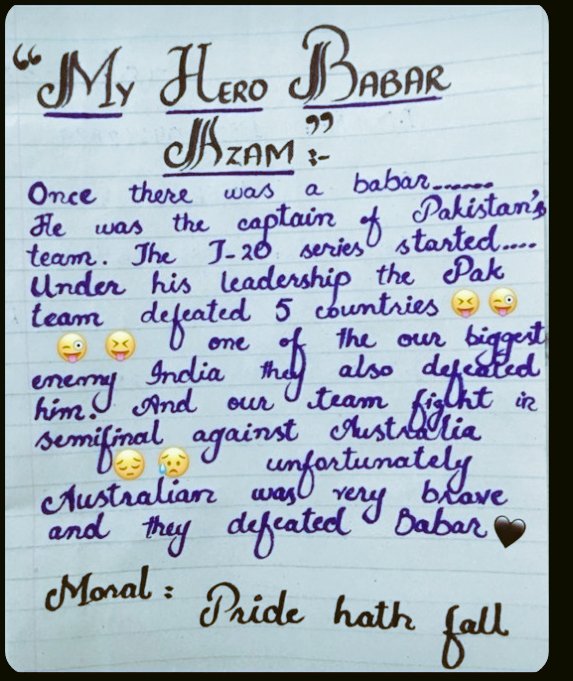 “ My Hero Babar
Azam ” :-
Once there was a babar......
He was the captain of Pakistan's
team. The T-20 series started....
Under his leadership the Pak
team defeated 5 countries 😝😜
😜 😝 one of the our biggest
enemy India they also defeated
him. And our team fight in
semifinal against Australia
😔😥 unfortunately
Australian was very brave
and they defeated Babar🖤
Moral : Pride hath fall